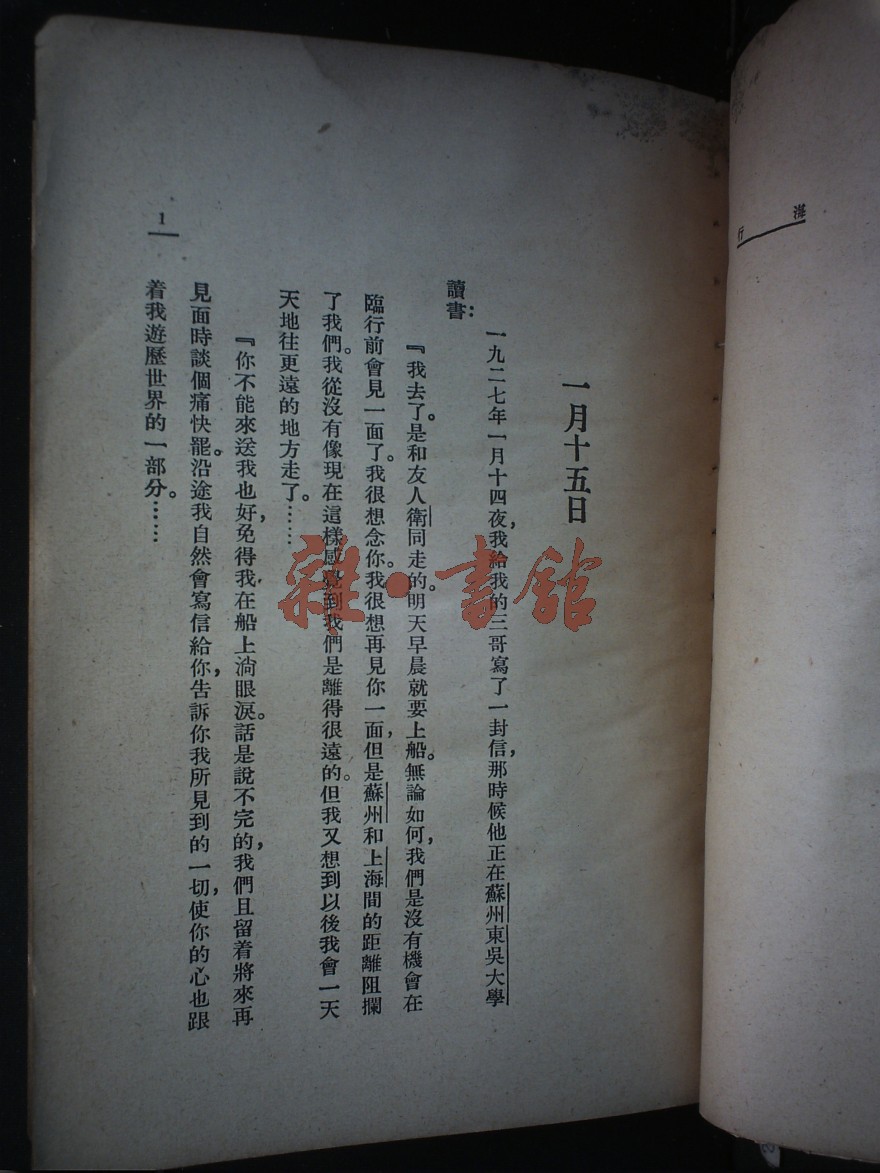 海行
一月十五日
一九二七年一月十四夜，我給我的三哥寫了一封信，那時候他正在蘇州東吳大學
讀書：
『我去了。是和友人衛同走的。明天早晨就要上船。無論如何，我們是沒有機會在
臨行前會見一面了。我很想念你。我很想再見你一面，但是蘇州和上海間的距離阻攔
了我們。我從沒有像現在這樣感覺到我們是離得很遠的。但我又想到以後我會一天
天地往更遠的地方走了。……
『你不能來送我也好，免得我在船上淌眼淚。話是說不完的，我們且留着將來再
見面時談個痛快罷。沿途我自然會寫信給你，告訴你我所見到的一切，使你的心也跟
着我遊歷世界的一部分。……
1
雜·書館